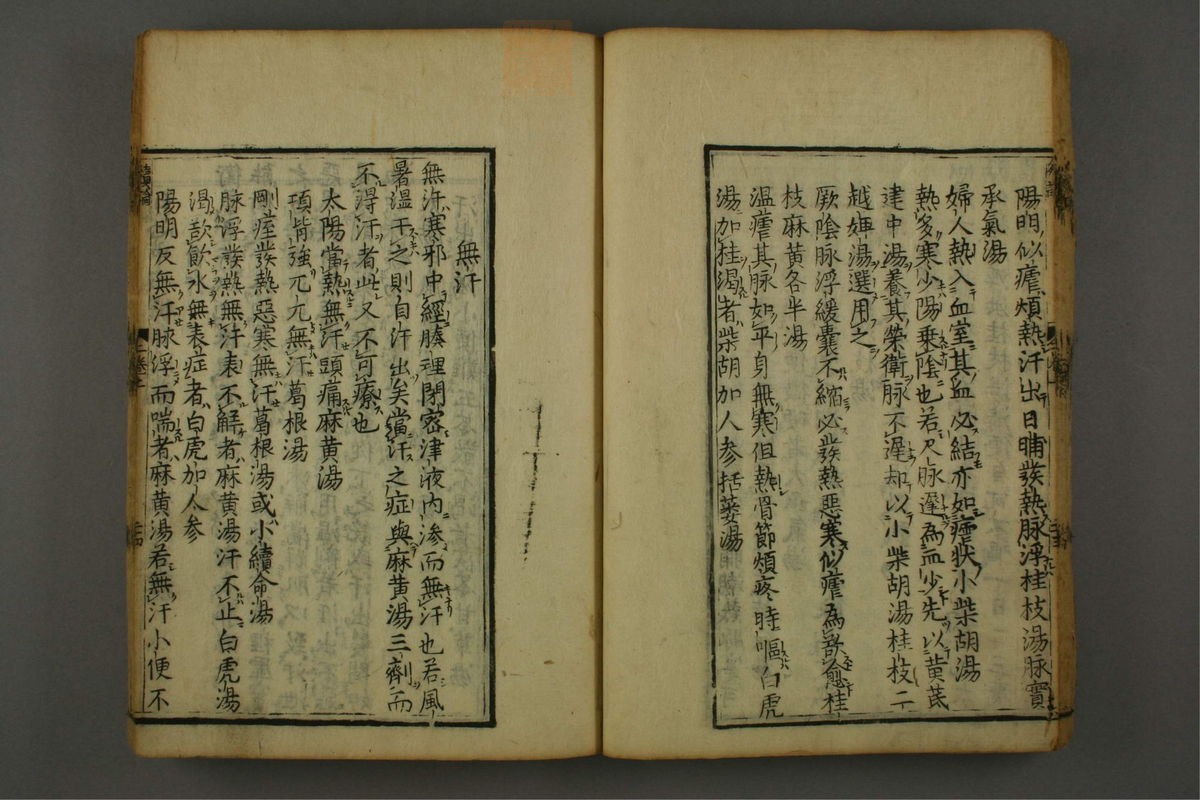 陽明似瘧煩熱汗出日晡發熱脉浮桂枝湯脉實
承氣湯
婦人熱入血室其血必結亦如瘧狀小柴胡湯
熱多寒少陽乗陰也若尺脉遲為血少先以黄茋
建中湯養其榮衛脉不遲却以小柴胡湯桂枝二
越婢湯選用之
厥陰脉浮緩囊不縮必發熱惡寒似瘧為欲愈桂
枝麻黄各半湯
温瘧其脉如平身無寒但熱骨節煩疼時嘔白虎
湯加桂渇者柴胡加人参括蔞湯
無汗
無汗寒邪中經腠理閉密津液内渗而無汗也若風
暑温干之則自汗出矣當汗之症與麻黄湯三劑而
不得汗者此又不可療也
太陽當熱無汗頭痛麻黄湯
項背強兀兀無汗葛根湯
剛痓發熱惡寒無汗葛根湯或小續命湯
脉浮發熱無汗表不解者麻黄湯汗不止白虎湯
渇欲飲水無表症者白虎加人参
陽明反無汗脉浮而喘者麻黄湯若無汗小便不